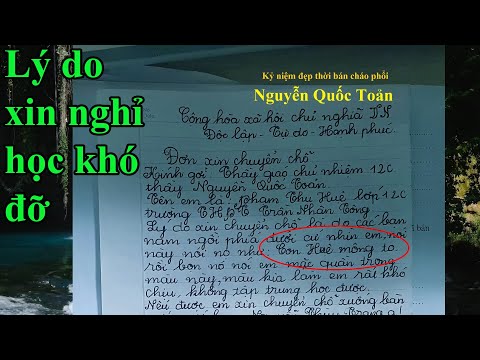 Lý do
xin nghỉ
học khó
đỡ
Kỷ niệm đẹp thời bán cháo phổi
Nguyễn Quốc Toản
Cộng hòa xã hội chủ nghĩa VN
Độc lập - Tự do - Hạnh phúc.
Đơn xin chuyển chỗ
Kính gởi: Thầy giáo chủ nhiệm 12C
thầy Nguyễn Quốc Toản.
Tên em là: Phạm Thu Huê lớp 12C
trường THPT Trần Nhân Tông
Lý do xin chuyển chỗ là do các bạn
nam ngồi phía dưới cứ nhìn em, nói
này nói nọ như: Con Huê mông to
rồi bọn nó nói em mặc quần trong
màu này, màu kia làm em rất khó
chịu, không tập trung học được.
Nếu được em xin chuyển chỗ xuống bàn